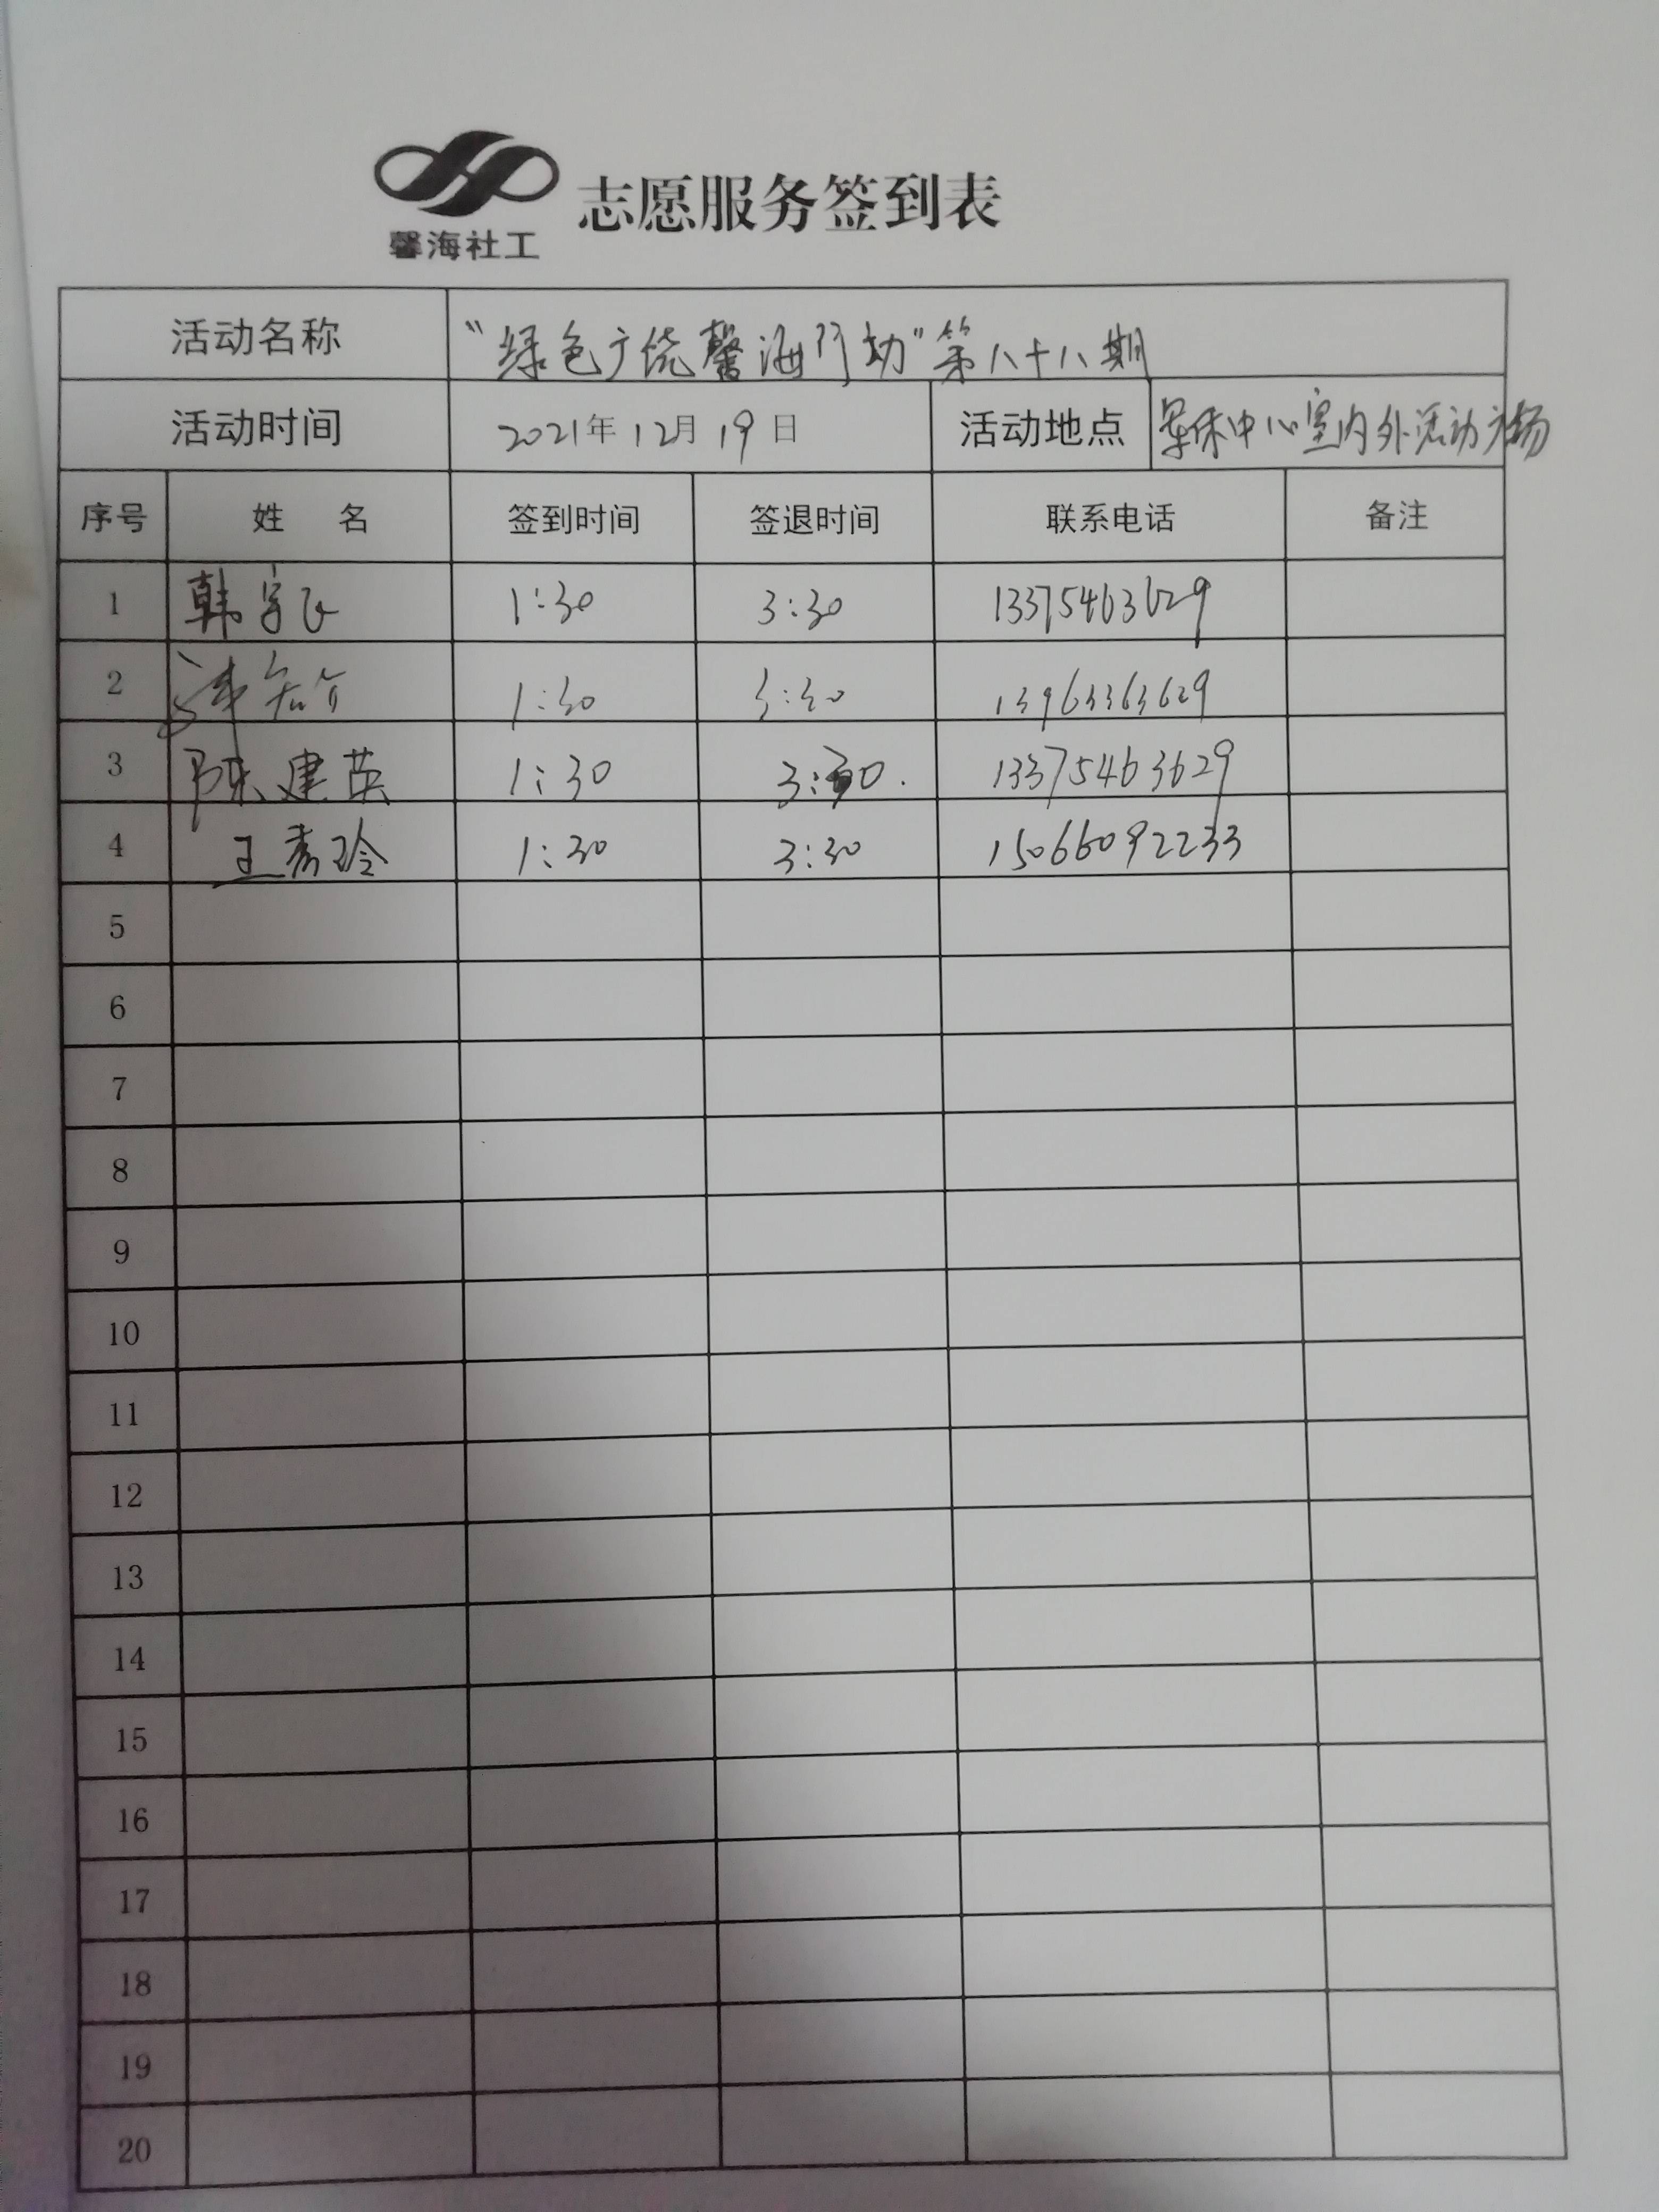 馨海社工
志愿服务签到表
活动名称 “绿色广饶馨海行动”第八十八期
活动时间 2021年12月19日 活动地点 中心室内外活动广场
序号 姓 名 签到时间 签退时间 联系电话 备注
1 韩 1:30 3:30 13375463629
2 1:30 3:30 13963363629
3 陈建英 1:30 3:30. 13375463629
4 王秀玲 1:30 3:30 15066092233
5
6
7
8
9
10
11
12
13
14
15
16
17
18
19
20